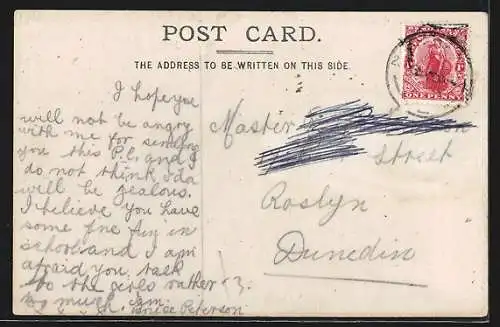 POST CARD.
THE ADDRESS TO BE WRITTEN ON THIS SIDE.
ONE PENNY
I hope you
will not be angry
with me for sending
you this P.C. and I
do not think Ida
will be jealous.
I believe you have
some fine fun in
school and I am
afraid you talk
to the girls rather
so much.
Peterson
Master
Street
Roslyn
Dunedin